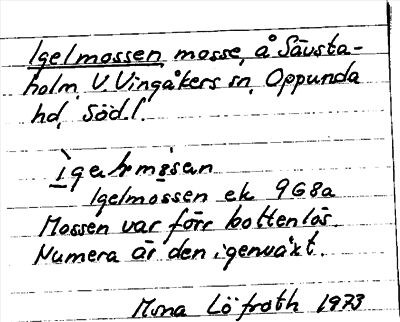 Igelmossen mosse, å Sävsta-
holm, V. Vingåkers sn, Oppunda
hd, Södl.
Igelmossen ek 9G8a
Mossen var förr bottenlös.
Numera är den igenväxt.
Mona Löfroth 1973